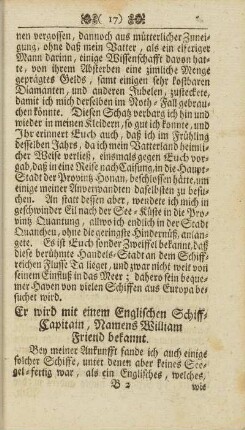 ( 17 )
nen vergossen, dannoch aus mütterlicher Zunei-
gung, ohne daß mein Vatter, als ein eiferiger
Mann darinn, einige Wissenschafft davon hat-
te, von ihrem Absterben eine zimliche Menge
geprägtes Gelds, samt einigen sehr kostbaren
Diamanten, und anderen Jubelen, zusteckete,
damit ich mich derselben im Noth-Fall gebrau-
chen könnte. Diesen Schatz verbarg ich hin und
wieder in meinen Kleidern, so gut ich konnte, und
Ihr erinnert Euch auch, daß ich im Frühling
desselben Jahrs, da ich mein Vatterland heimli-
cher Weise verließ, einsmals gegen Euch vor-
gab, daß in eine Reise nach Caisung, in die Haupt-
Stadt der Provintz Honan, beschlossen hätte, um
einige meiner Anverwandten daselbsten zu besu-
chen. An statt dessen aber, wendete ich mich in
geschwinder Eil nach der See-Küste in die Pro-
vintz Quantung, allwo ich endlich in der Stadt
Quanchen, ohne die geringste Hindernüß, anlan-
gete. Es ist Euch sonder Zweiffel bekannt, daß
diese berühmte Handels-Stadt an dem Schiff-
reichen Flusse Ta lieget, und zwar nicht weit von
seinem Einfluß in das Meer; dahero sein beque-
mer Haven von vielen Schiffen aus Europa be-
suchet wird.
Er wird mit einem Englischen Schiff-
Capitain, Namens William
Friend bekannt.
Bey meiner Ankunfft fande ich auch einige
solcher Schiffe, unter denen aber keines See-
gel-fertig war, als ein Englisches, welches,
B 2 wie